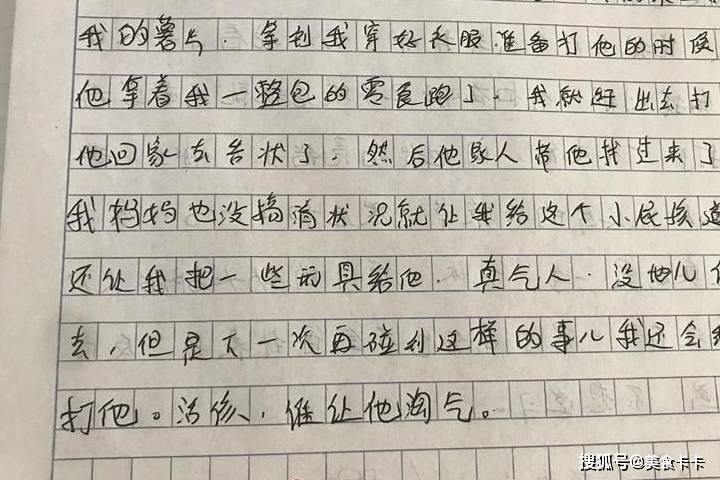 我的薯片.等到我穿好衣服准备打他的时候
他拿着我一整包的零食跑了.我就追出去打
他回家去告状了.然后他家人带他找过来了
我妈妈也没搞清状况就让我给这个小屁孩道
还让我把一些玩具给他.真气人.没地儿
去,但是下一次再碰到这样的事儿我还会
打他。活该.谁让他淘气。
搜狐号@美食卡卡